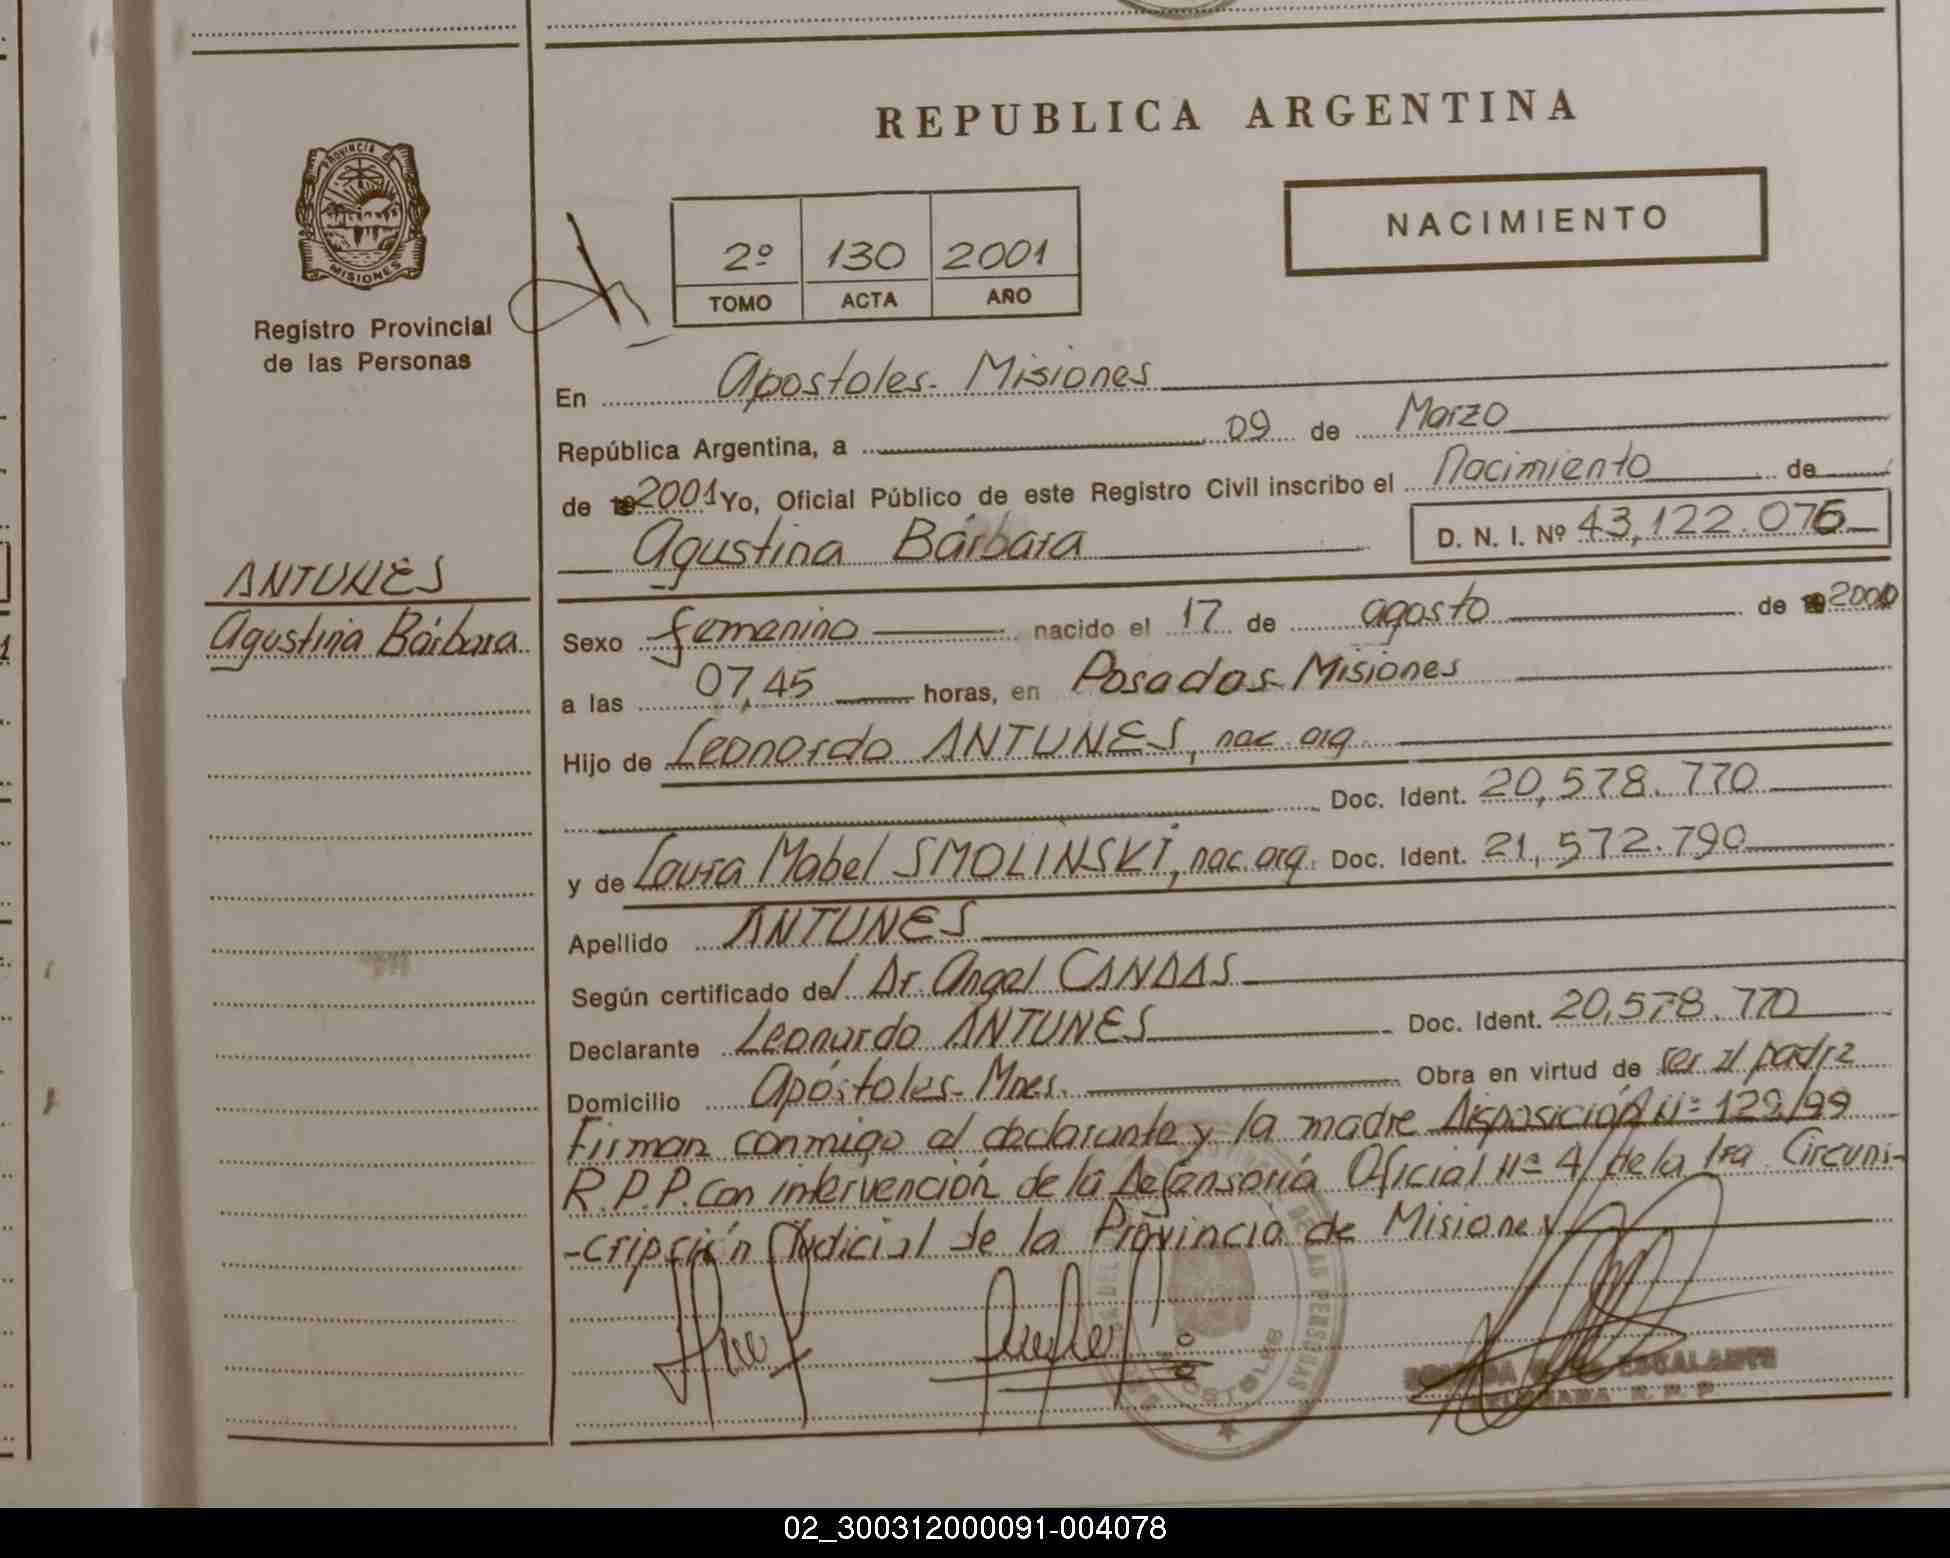 REPUBLICA ARGENTINA
PROVINCIA DE
MISIONES
Registro Provincial
de las Personas
NACIMIENTO
2º 130 2001
TOMO ACTA AÑO
En Apostoles- Misiones
República Argentina, a 09 de Marzo
de 2001 Yo, Oficial Público de este Registro Civil inscribo el Nacimiento de
Agustina Bárbara D. N. I. Nº 43,122.076
ANTUNES
Agustina Bárbara
Sexo femenino nacido el 17 de agosto de 2000
a las 07,45 horas, en Posadas- Misiones
Hijo de Leonardo ANTUNES, nac. arg.
Doc. Ident. 20,578.770
y de Laura Mabel SMOLINSKI, nac. arg. Doc. Ident. 21,572.790
Apellido ANTUNES
Según certificado del Dr. Angel CANDAS
Declarante Leonardo ANTUNES Doc. Ident. 20,578.770
Domicilio Apóstoles- Mnes. Obra en virtud de ser el padre
Firman conmigo el declarante y la madre Disposición Nº 129/99
R.P.P. Con intervención de la Defensoría Oficial Nº 4 de la 1ra Circuns-
-cripción Judicial de la Provincia de Misiones
DE LAS PERSONAS
APOSTOLES
ESCALANTE
DELEGADA R. P. P
02_300312000091-004078